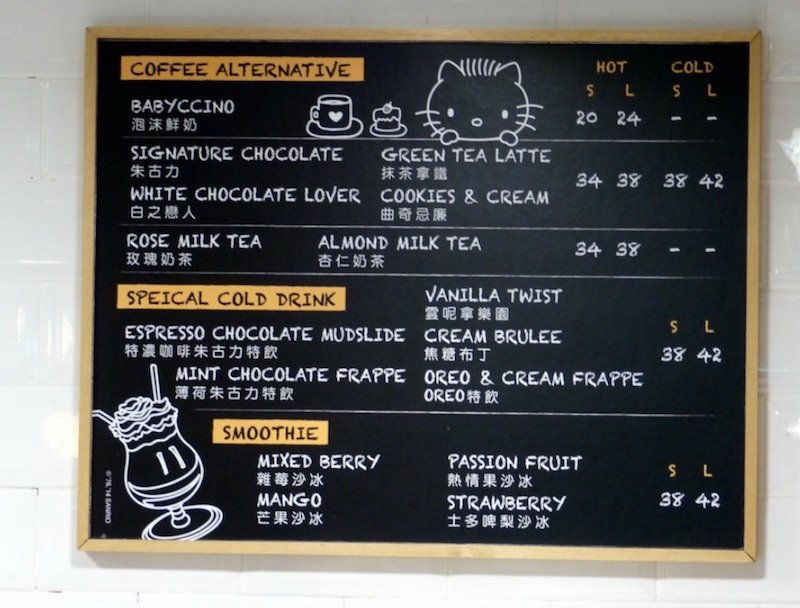 COFFEE ALTERNATIVE HOT COLD
S L S L
BABYCCINO 20 24 - -
泡沫鮮奶
SIGNATURE CHOCOLATE GREEN TEA LATTE
朱古力 抹茶拿鐵
34 38 38 42
WHITE CHOCOLATE LOVER COOKIES & CREAM
白之戀人 曲奇忌廉
ROSE MILK TEA ALMOND MILK TEA 34 38 - -
玫瑰奶茶 杏仁奶茶
SPEICAL COLD DRINK VANILLA TWIST
雲呢拿樂園
S L
ESPRESSO CHOCOLATE MUDSLIDE CREAM BRULEE
特濃咖啡朱古力特飲 焦糖布丁
38 42
MINT CHOCOLATE FRAPPE OREO & CREAM FRAPPE
薄荷朱古力特飲 OREO特飲
SMOOTHIE
MIXED BERRY PASSION FRUIT
雜莓沙冰 熱情果沙冰
S L
MANGO STRAWBERRY 38 42
芒果沙冰 士多啤梨沙冰
© '76, '14 SANRIO